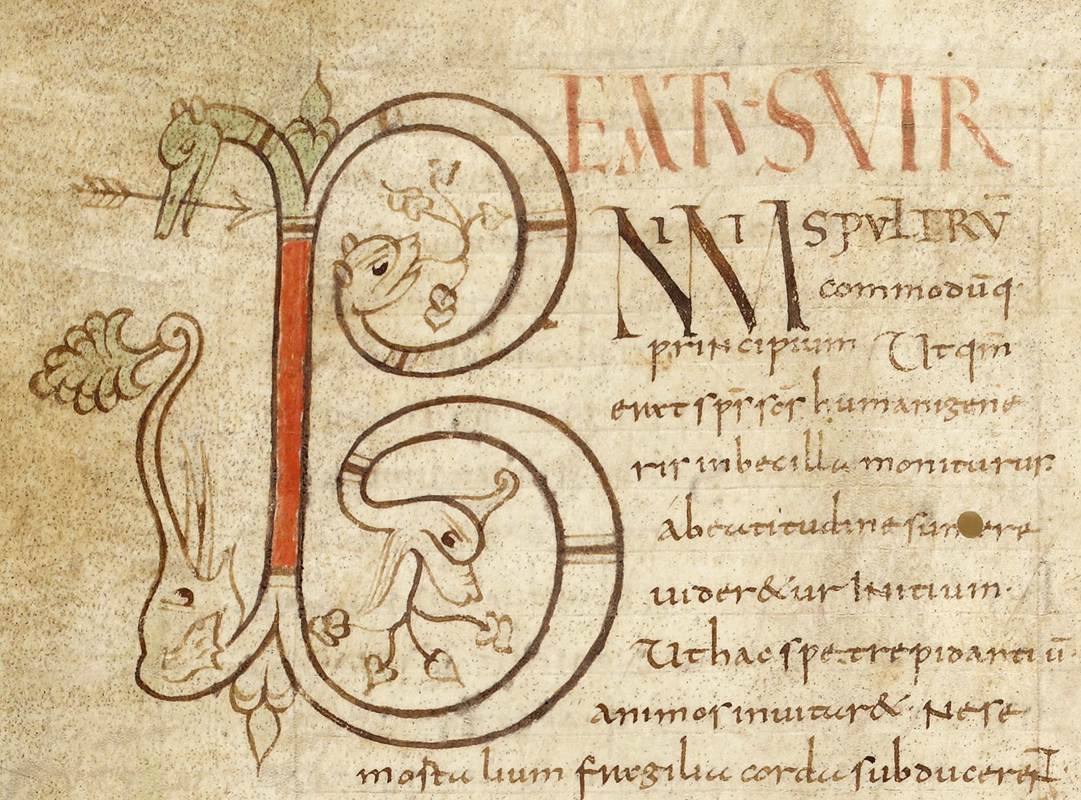 BEATUS VIR
NIMIS PULCRŪ
commodūq·
principium Utqm̄
erat sp̄s sc̄s humani gene
ris inbecilla moniturus
a beatitudine sumere
uider&ur Initium·
Ut hac spe trepidantiū
animos inuitar& Ne se
mortalium fragilia corda subducerent